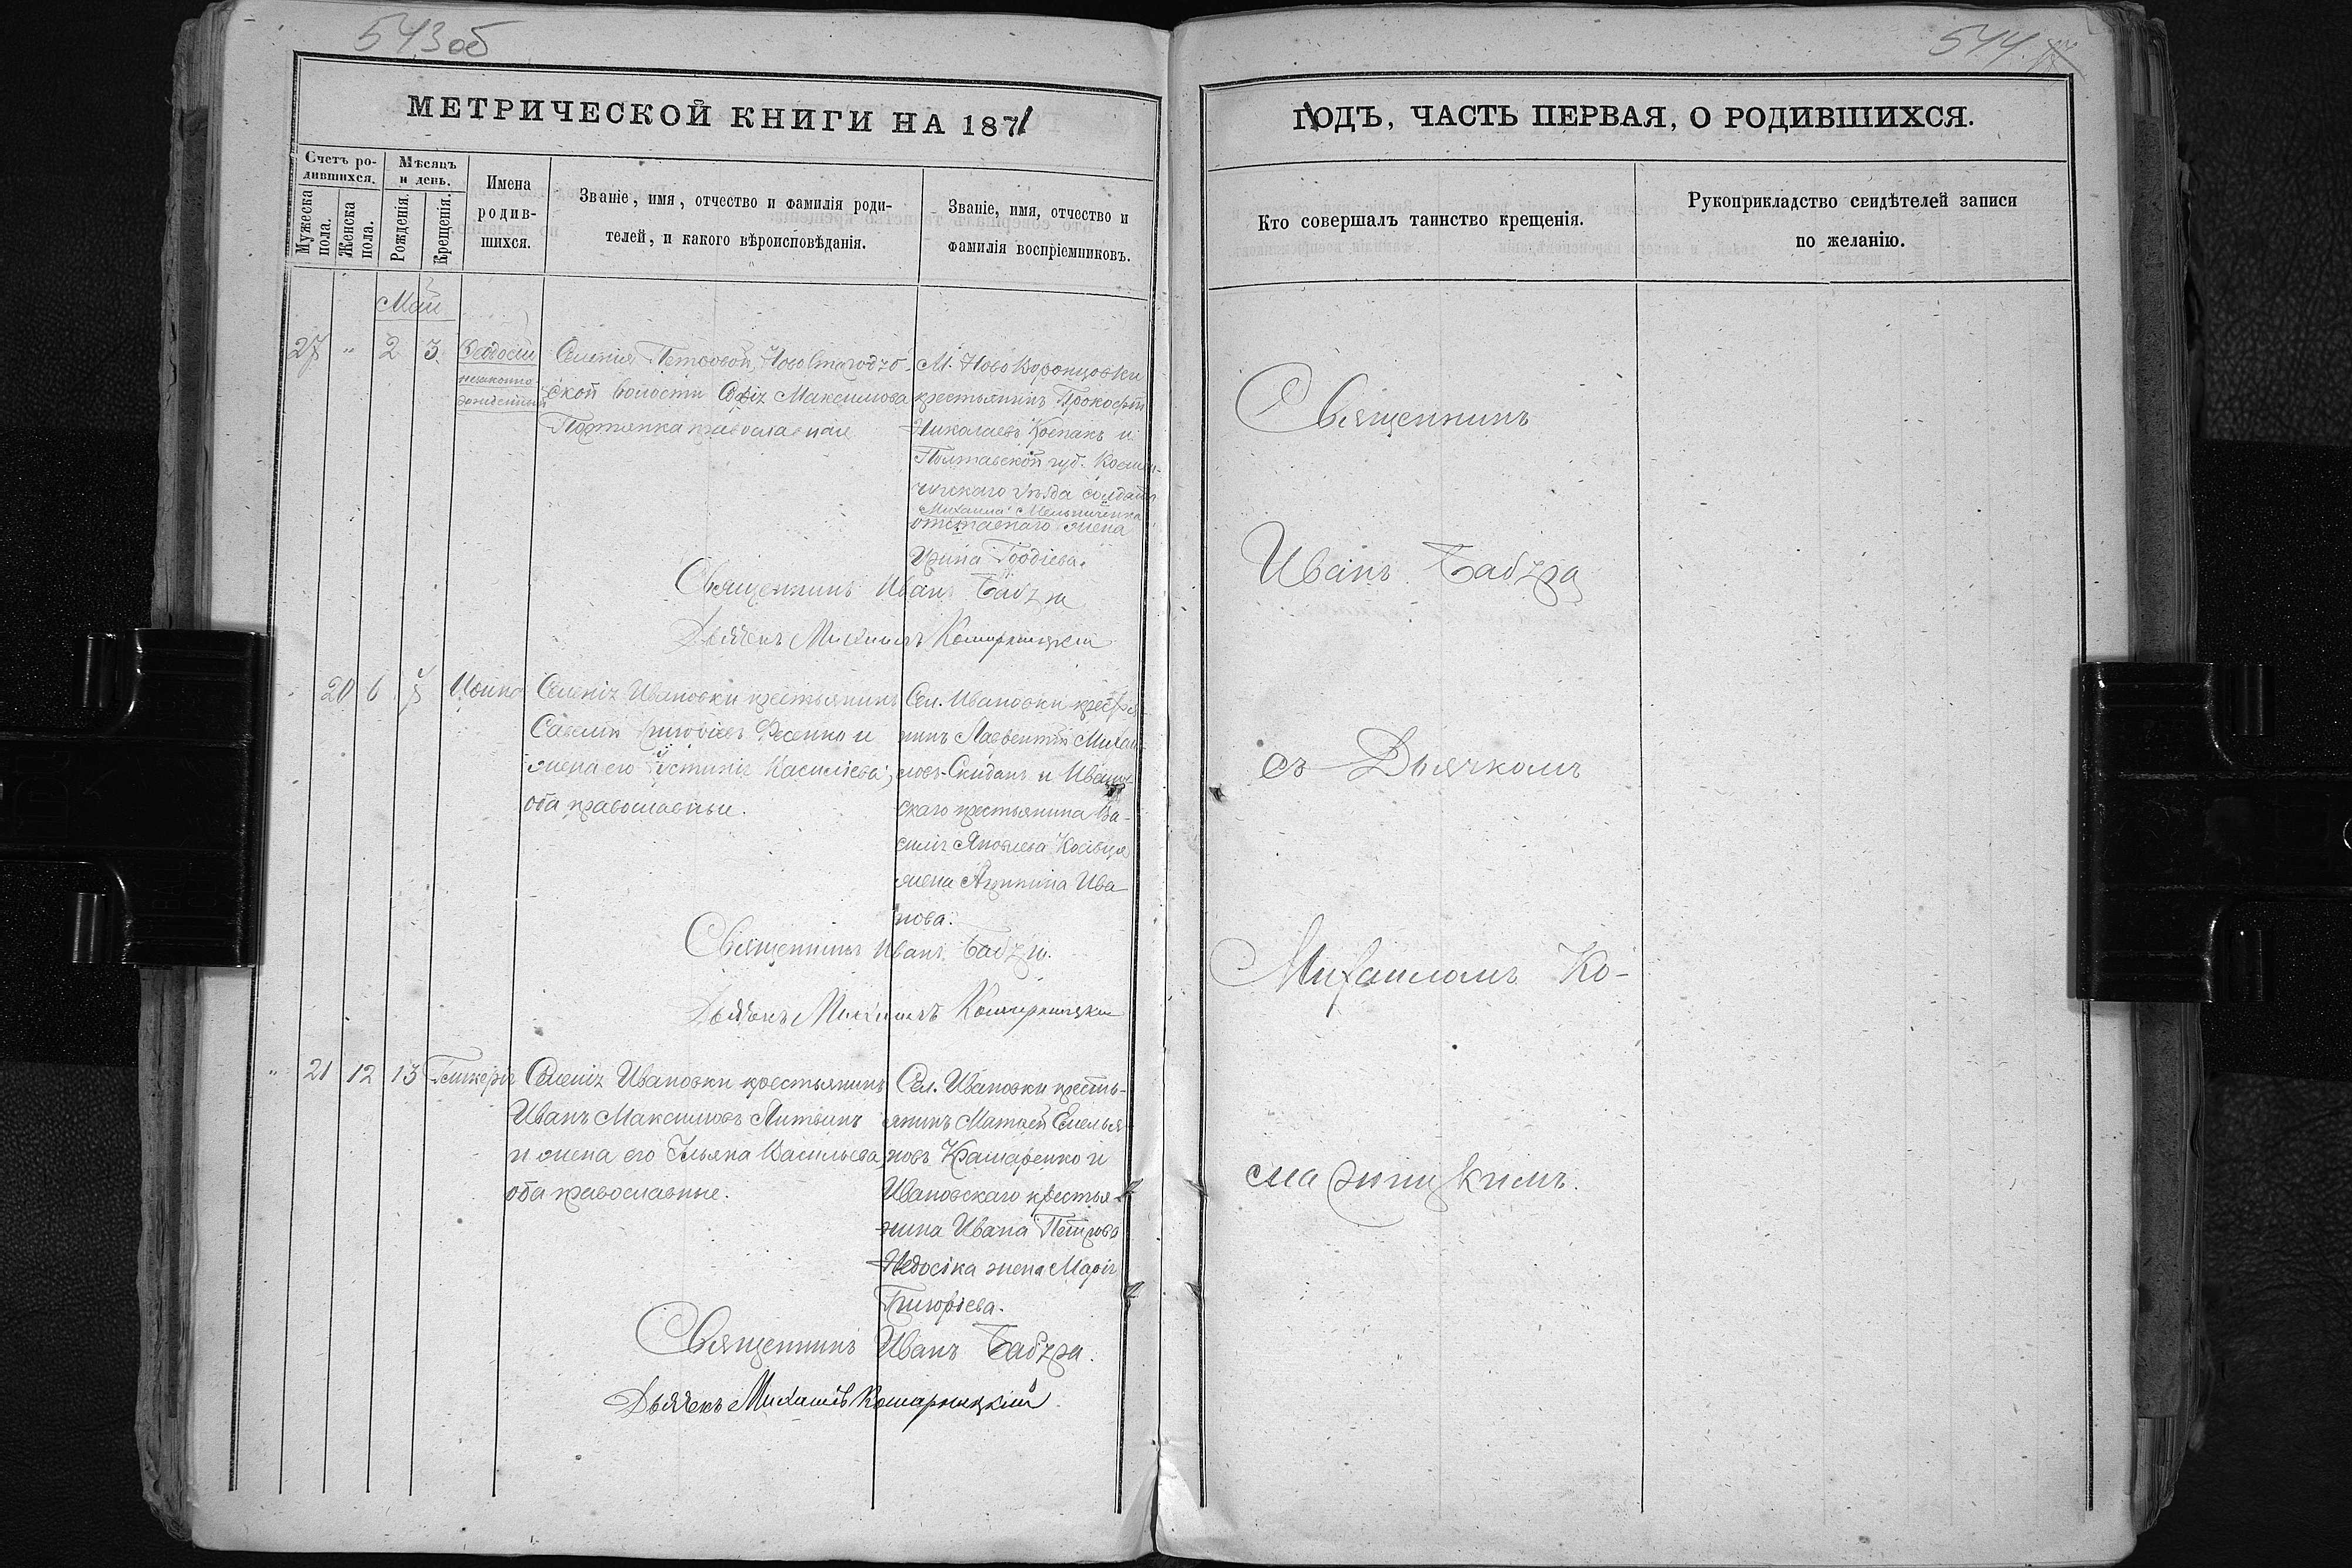 543 об
МЕТРИЧЕСКОЙ КНИГИ НА 1871
Счетъ ро-
дившихся.
Мужеска пола.
Женска пола.
Мѣсяцъ
и день.
Рожденія.
Крещенія.
Имена
родив-
шихся.
Званіе, имя, отчество и фамилія роди-
телей, и какого вѣроисповѣданія.
Званіе, имя, отчество и
фамилія воспріемниковъ.
Май
27 " 2 3
Феодосій
незаконно-
рожденный
Селенія
ской волости Максимова
православная
М. Ново Воронцовки
крестьянинъ Прокофій
Николаевъ и
Полтавской губ.
уѣзда солдата
Михаила Мельниченка
отставнаго жена
Ирина
Священникъ Иванъ Бабура
Дьячекъ Михаилъ Комарницкій
20 6
Селенія Ивановки крестьянинъ
Савелій Григоріевъ Фесенко и
жена его Василіева,
оба православные.
Сел. Ивановки крестья-
нинъ Лаврентій Михаи-
ловъ Скиданъ и Иванов-
скаго крестьянина Ва-
силія Яковлева
жена Агрипина Ива
нова.
Священникъ Иванъ Бабура.
Дьячекъ Михаилъ Комарницкій
" 21 12 13 Гликерія
Селенія Ивановки крестьянинъ
Иванъ Максимовъ Литвинъ
и жена его Ульяна Васильева,
оба православные.
Сел. Ивановки кресть-
янинъ Матвей Емелья
новъ Крамаренко и
Ивановскаго крестья-
нина Ивана Петрова
жена Марія
Григоріева.
Священникъ Иванъ Бабура.
Дьячекъ Михаилъ Комарницкій
544
ГОДЪ, ЧАСТЬ ПЕРВАЯ, О РОДИВШИХСЯ.
Кто совершалъ таинство крещенія.
Рукоприкладство свидѣтелей записи
по желанію.
Священникъ
Иванъ Бабура
съ Дьячкомъ
Михаиломъ Ко-
марницкимъ.